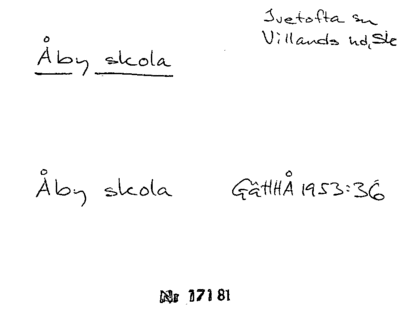 Ivetofta sn
Villands hd, Sk
Åby skola
Åby skola GäHHÅ 1953:36
Nr 171 81